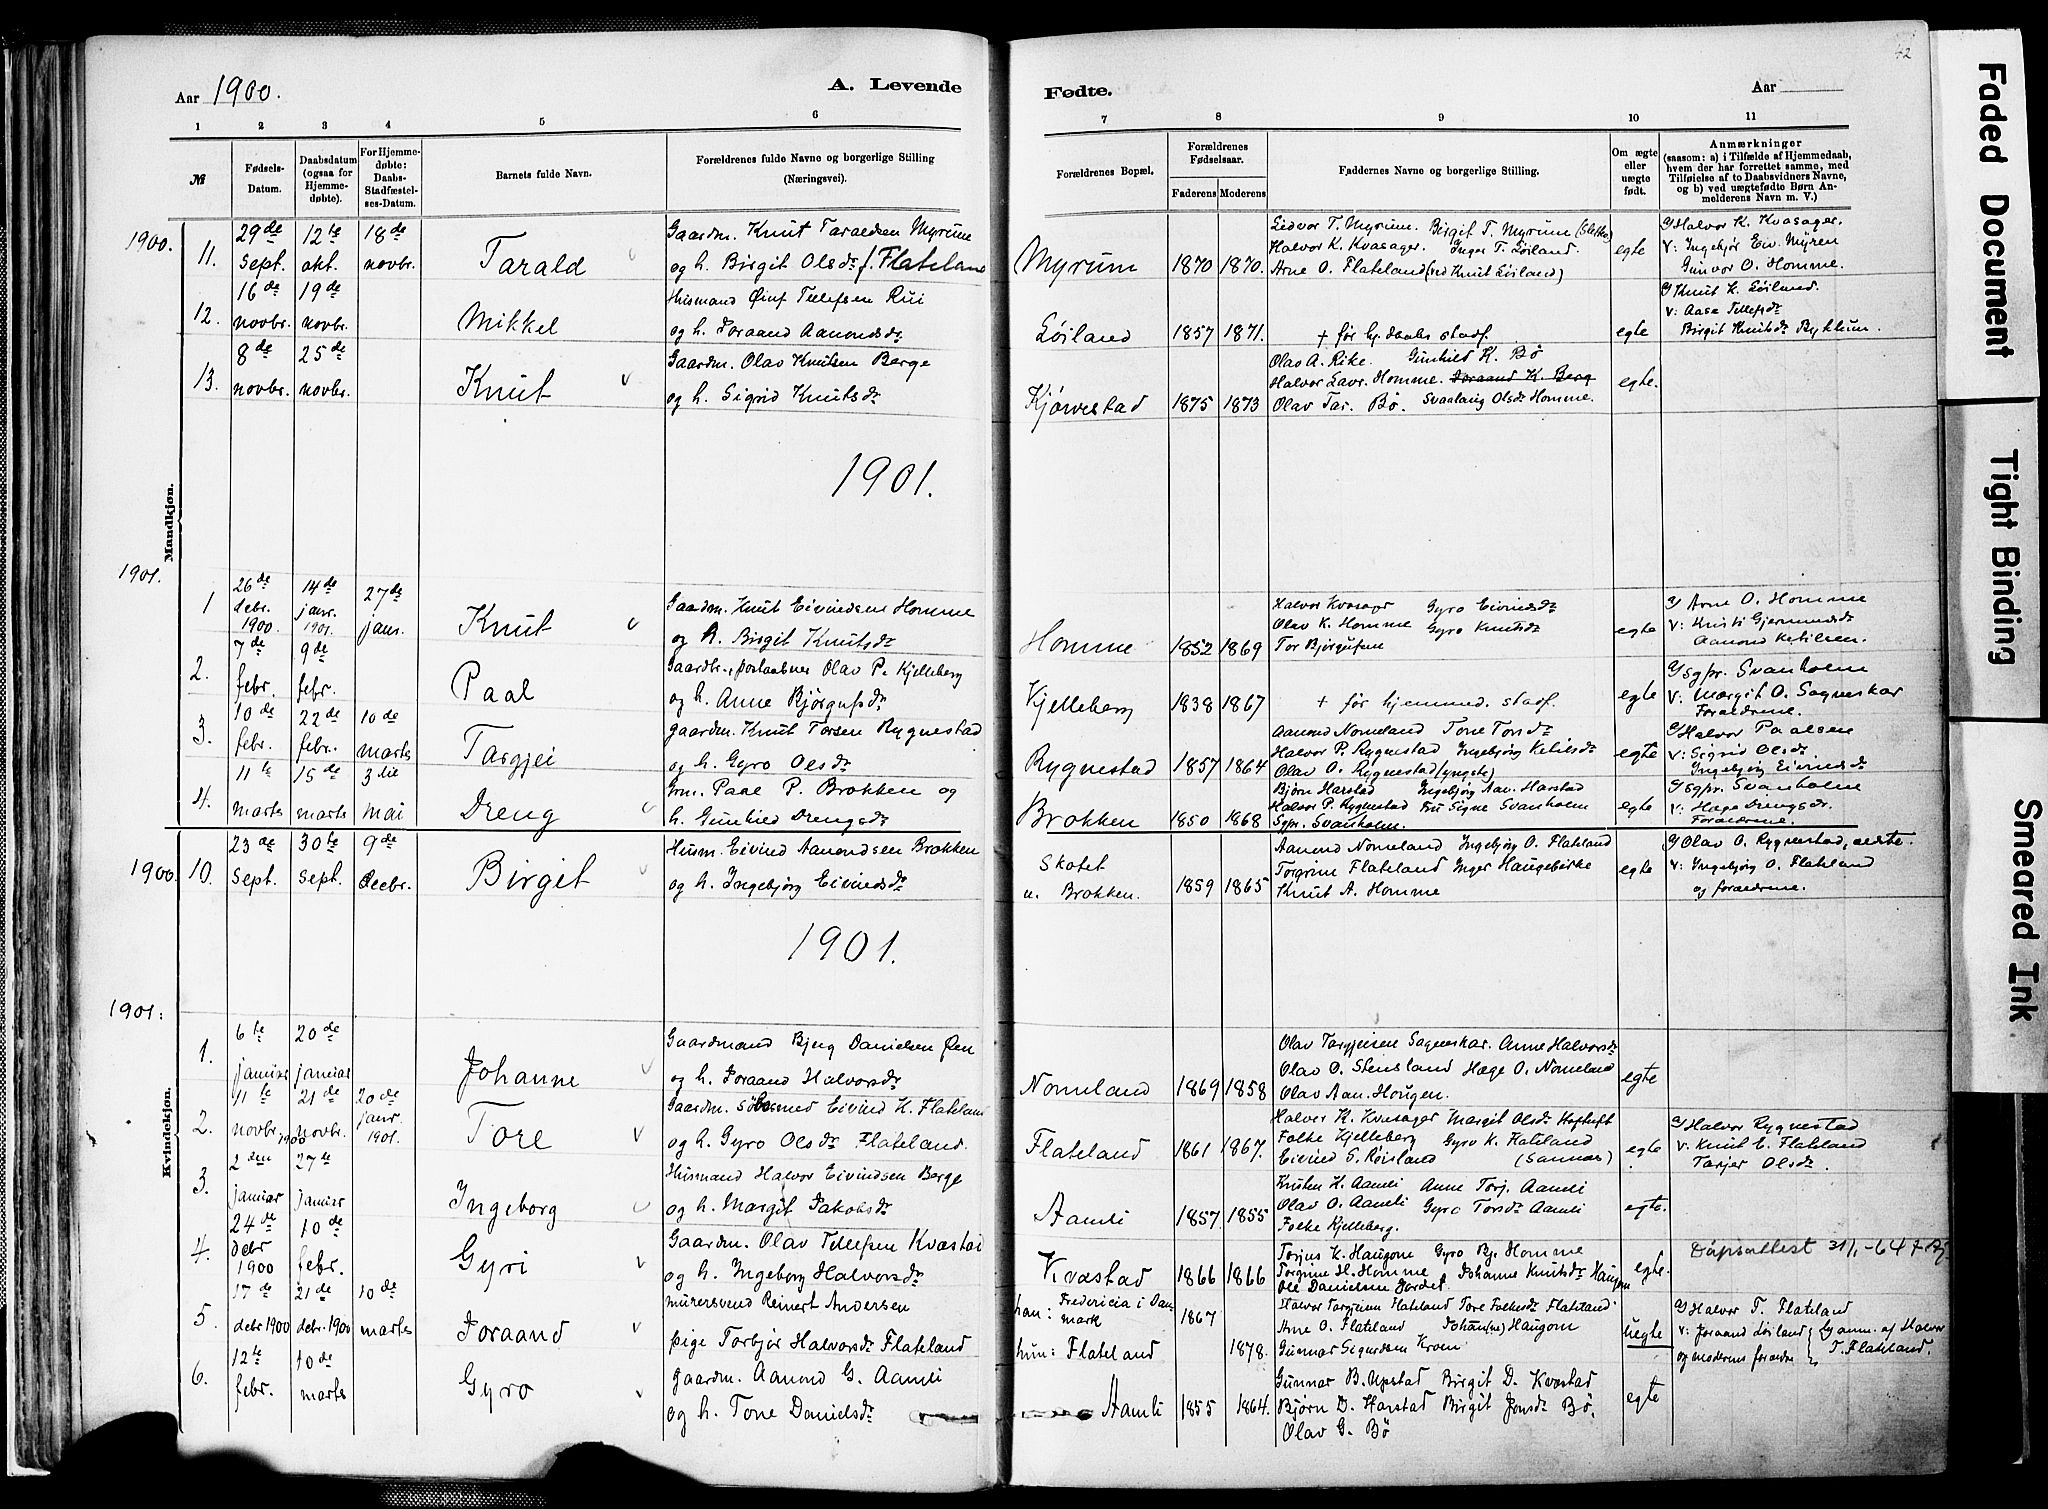 42
Aar 1900.
A. Levende
Fødte.
Aar
1
2
3
4
5
6
7
8
9
10
11
№
Fødsels-
Datum.
Daabsdatum
(ogsaa for
Hjemme-
døbte).
For Hjemme-
døbte:
Daabs-
Stadfæstel-
ses-Datum.
Barnets fulde Navn.
Forældrenes fulde Navne og borgerlige Stilling
(Næringsvei).
Forældrenes Bopæl.
Forældrenes
Fødselsaar.
Faderens
Moderens
Faddernes Navne og borgerlige Stilling.
Om ægte
eller
uægte
født.
Anmærkninger
(saasom: a) i Tilfælde af Hjemmedaab,
hvem der har forrettet samme, med
Tilføielse af to Daabsvidners Navne,
og b) ved uægtefødte Børn An-
melderens Navn m. V.)
Mandkjøn.
1900.
11.
29de
Sept.
12te
okt.
18de
novbr.
Tarald
Gaardm. Knut Taraldsen Myrum
og h. Birgit Olsdr f. Flateland
Myrum
1870
1870.
Eidvor T. Myrum. Birgit T. Myrum
Halvor K. Kvasager. Inger T. Løiland.
Arne O. Flateland (ved Knut Løiland)
egte
Halvor K. Kvasager.
V: Ingebjør Eiv. Myren
Gunvor O. Homme.
12.
16de
novbr.
19de
novbr.
Mikkel
Husmand Øiuf Tellefsen Rui
og h. Joraand Aanondsdr
Løiland
1857
1871.
+ før hj. daabs stadf.
egte
Knut K. Løiland.
V: Aase Tellefsdr
Birgit Knutsdr Ryklum.
13.
8de
novbr.
25de
novbr.
Knut
Gaardm. Olav Knutsen Berge
og h. Sigrid Knutsdr
Kjørvestad
1875
1873
Olav A. Rike. Gunhild K. Bø
Halvor Lavr. Homme. Joraand K. Berg
Olav Tar. Bø. Svaalaug Olsdr Homme.
egte.
1901.
1901.
1
26de
debr.
1900
14de
janr.
1901.
27de
janr.
Knut
Gaardm. Knut Eivindsen Homme
og h. Birgit Knutsdr
Homme
1852
1869
Halvor Kvasager Gyro Eivindsdr
Olav K. Homme Gyro Knutsdr
Tor Bjørgufsen
egte
Arne O. Homme
V: Kristi Gjermundsdr
Aanond Ketilsen.
2.
7de
febr.
9de
febr.
Paal
Gaardbr., postaabner Olav P. Kjelleberg
og h. Anne Bjørgufsdr
Kjelleberg
1838
1867
+ før hjemmed. stadf.
egte
sgpr. Svanholm
V: Margit O. Sagneskar
Forældrene.
3.
10de
febr.
22de
febr.
10de
marts
Targjei
gaardm. Knut Torsen Rygnestad
og h. Gyro Olsdr
Rygnestad
1857
1864
Aanond Nomeland Tone Torsdr
Halvor P. Rygnestad Ingebjørg Ketilsdr
Olav O. Rygnestad (yngste)
egte
Halvor Paalsen
V: Sigrid Olsdr
Ingebjørg Eivindsdr
4.
11te
marts
15de
marts
3die
mai
Dreng
Grm. Paal P. Brokken og
h. Gunhild Drengsdr
Brokken
1850
1868
Bjørn Harstad Ingebjørg Aav. Harstad
Halvor P. Rygnestad Fru Signe Svanholm
Sgpr. Svanholm.
egte
Sgpr. Svanholm
V: Hæge Drengsdr.
Forældrene.
Kvindekjøn.
1900.
10.
23de
Sept.
30te
Sept.
9de
decbr.
Birgit
Husm. Eivind Aanondsen Brokken
og h. Ingebjørg Eivindsdr
Skotet
u. Brokken.
1859
1865
Aanond Nomeland Ingebjørg O. Flateland
Torgrim Flateland Inger Haugebirke
Knut A. Homme
egte
Olav O. Rygnestad, ældste.
V: Ingebjørg O. Flateland
og forældrene.
1901.
1901:
1.
6te
januar
20de
januar
Johanne
Gaardmand Bjug Danielsen Øen
og h. Joraand Halvorsdr
Nomeland
1869
1858
Olav Targjeisen Sagneskar. Anne Halvorsdr
Olav O. Stensland Hæge O. Nomeland
Olav Aan. Haugen.
egte
2.
11te
novbr. 1900
21de
novbr.
20de
janr.
1901.
Tore
Gaardm. Eivind K. Flateland
og h. Gyro Olsdr Flateland.
Flateland
1861
1867.
Halvor K. Kvasager Margit Olsdr
Folke Kjelleberg Gyro K. Flateland
Eivind S. Røisland (Sannes)
egte
Halvor Rygnestad
V: Knut E. Flateland
Tarjer Olsdr.
3.
2den
januar
27de
januar
Ingeborg
Husmand Halvor Eivindsen Berge
og h. Margit Jakobsdr
Aamli
1857.
1855
Kristen H. Aamli Anne Torj. Aamli
Olav O. Aamli Gyro Torsdr Aamli
Folke Kjelleberg.
egte.
4.
24de
debr
1900
10de
febr.
Gyri
Gaardm. Olav Tellefsen Kvæstad
og h. Ingeborg Halvorsdr
Kvæstad
1866
1866
Torjus K. Haugom Gyro Bj. Homme
Torgrim H. Homme Johanne Knutsdr Haugen
Ole Danielsen Jordal.
egte.
Dåpsattest 31/1-64
5.
17de
debr 1900
21de
debr. 1900
10de
marts
Joraand
Murersvend Reinert Andersen
pige Torbjør Halvorsdr Flateland
han: Fredericia i Dan-
mark
hun: Flateland
1867
1878.
Halvor Targrimsen Flateland Tore Folkesdr Flateland
Arne O. Flateland Johan(ne) Haugom
Gunnar Sigurdsen Kroen
uegte
Halvor T. Flateland
V: Joraand Løiland
og moderens forældre
anm. af Halvor
T. Flateland.
6.
12te
febr.
10de
marts
Gyro
gaardm. Aanond G. Aamli
og h. Tone Danielsdr
Aamli
1855
1864.
Gunnar B. Upstad Birgit D. Kvæstad
Bjørn D. Harstad Birgit Jonsdr Bø.
Olav G. Bø
egte
Faded Document
Tight Binding
Smeared Ink